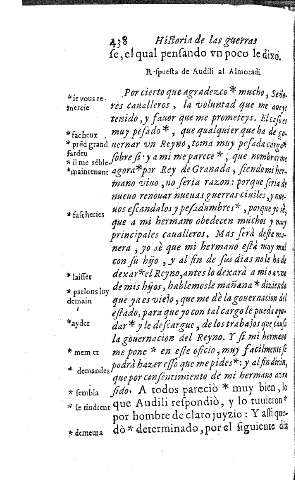 438 Historia de las guerras
se, el qual pensando vn poco le dixo.
Respuesta de Audili al Almoradi.
Por cierto que agradezco * mucho, Señores
res caualleros, la voluntad que me aueys
* ie vous remercie
tenido, y fauor que me prometeys. El caso es
muy pesado *, que qualquier que ha de go-
* facheux
uernar vn Reyno, toma muy pesada carga *
* prẽd grand fardeu
sobre si: y a mi me parece *, que nombrarme
* il me sẽble
agora * por Rey de Granada, siendo mi her-
* maintenant
mano viuo, no seria razon: porque seria de
nueuo renouar nueuas guerras ciuiles, y nue-
uos escandalos y pesadumbres *, porque yo sè,
* fascheries
que a mi hermano obedecen muchos y muy
principales caualleros. Mas serà desta ma-
nera, yo sè que mi hermano està muy mal
con su hijo, y al fin de sus dias no le ha de
dexar * el Reyno, antes lo dexarà a mi o a vno
* laisser
de mis hijos, hablemosle mañana * diziendo
* parlons luy demain
que ya es viejo, que me dè la gouernacion del
estado, para que yo con tal cargo le pueda ayu-
dar * y le descargue, de los trabajos que causa
* ayder
la gouernacion del Reyno. Y si mi hermano
me pone * en este oficio, muy facilmente se
* met et
podrà hazer esso que me pides *: y al fin diràn,
* demandes
que por consentimiento de mi hermano aurà
sido. A todos pareciò * muy bien, lo
* sembla
que Audili respondiò, y lo tuuieron *
* le tindrent
por hombre de claro juyzio: Y assi que-
dò * determinado, por el siguiente dia
* demeura